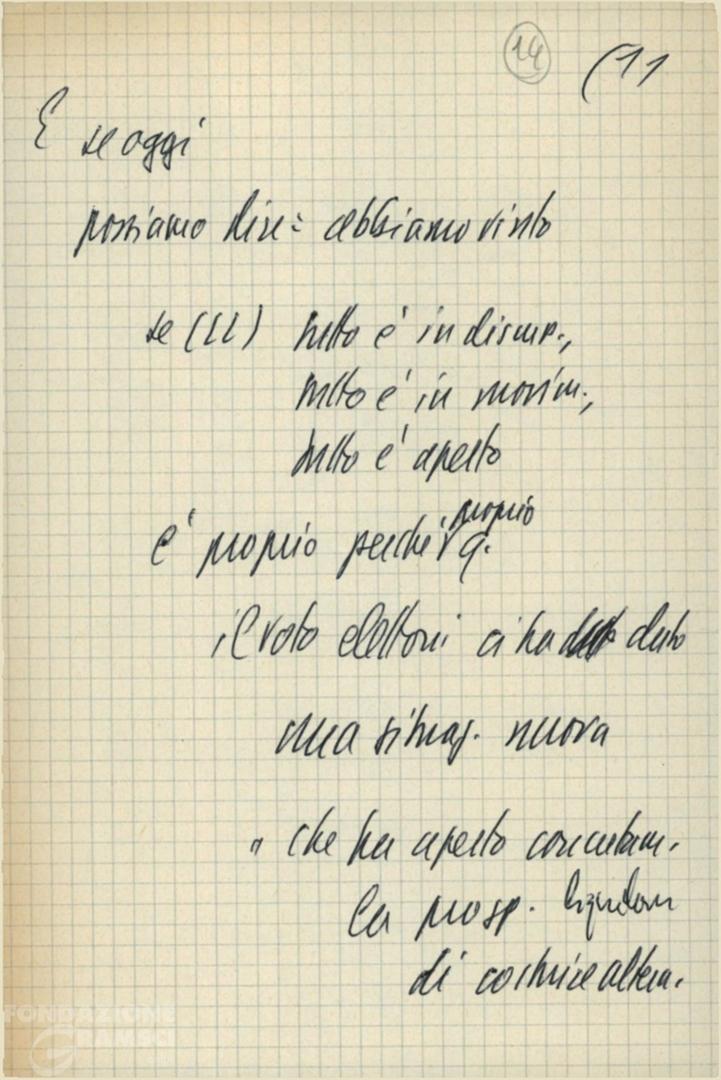 14 (11
E se oggi
possiamo dire: abbiamo vinto
se (LL) tutto è in discus.,
tutto è in movim.,
tutto è aperto
proprio
è proprio perché
il voto elettori ci ha dato
una situaz. nuova
" che ha aperto concretam.
la prosp.
di costruire altern.
FONDAZIONE
GRAMSCI